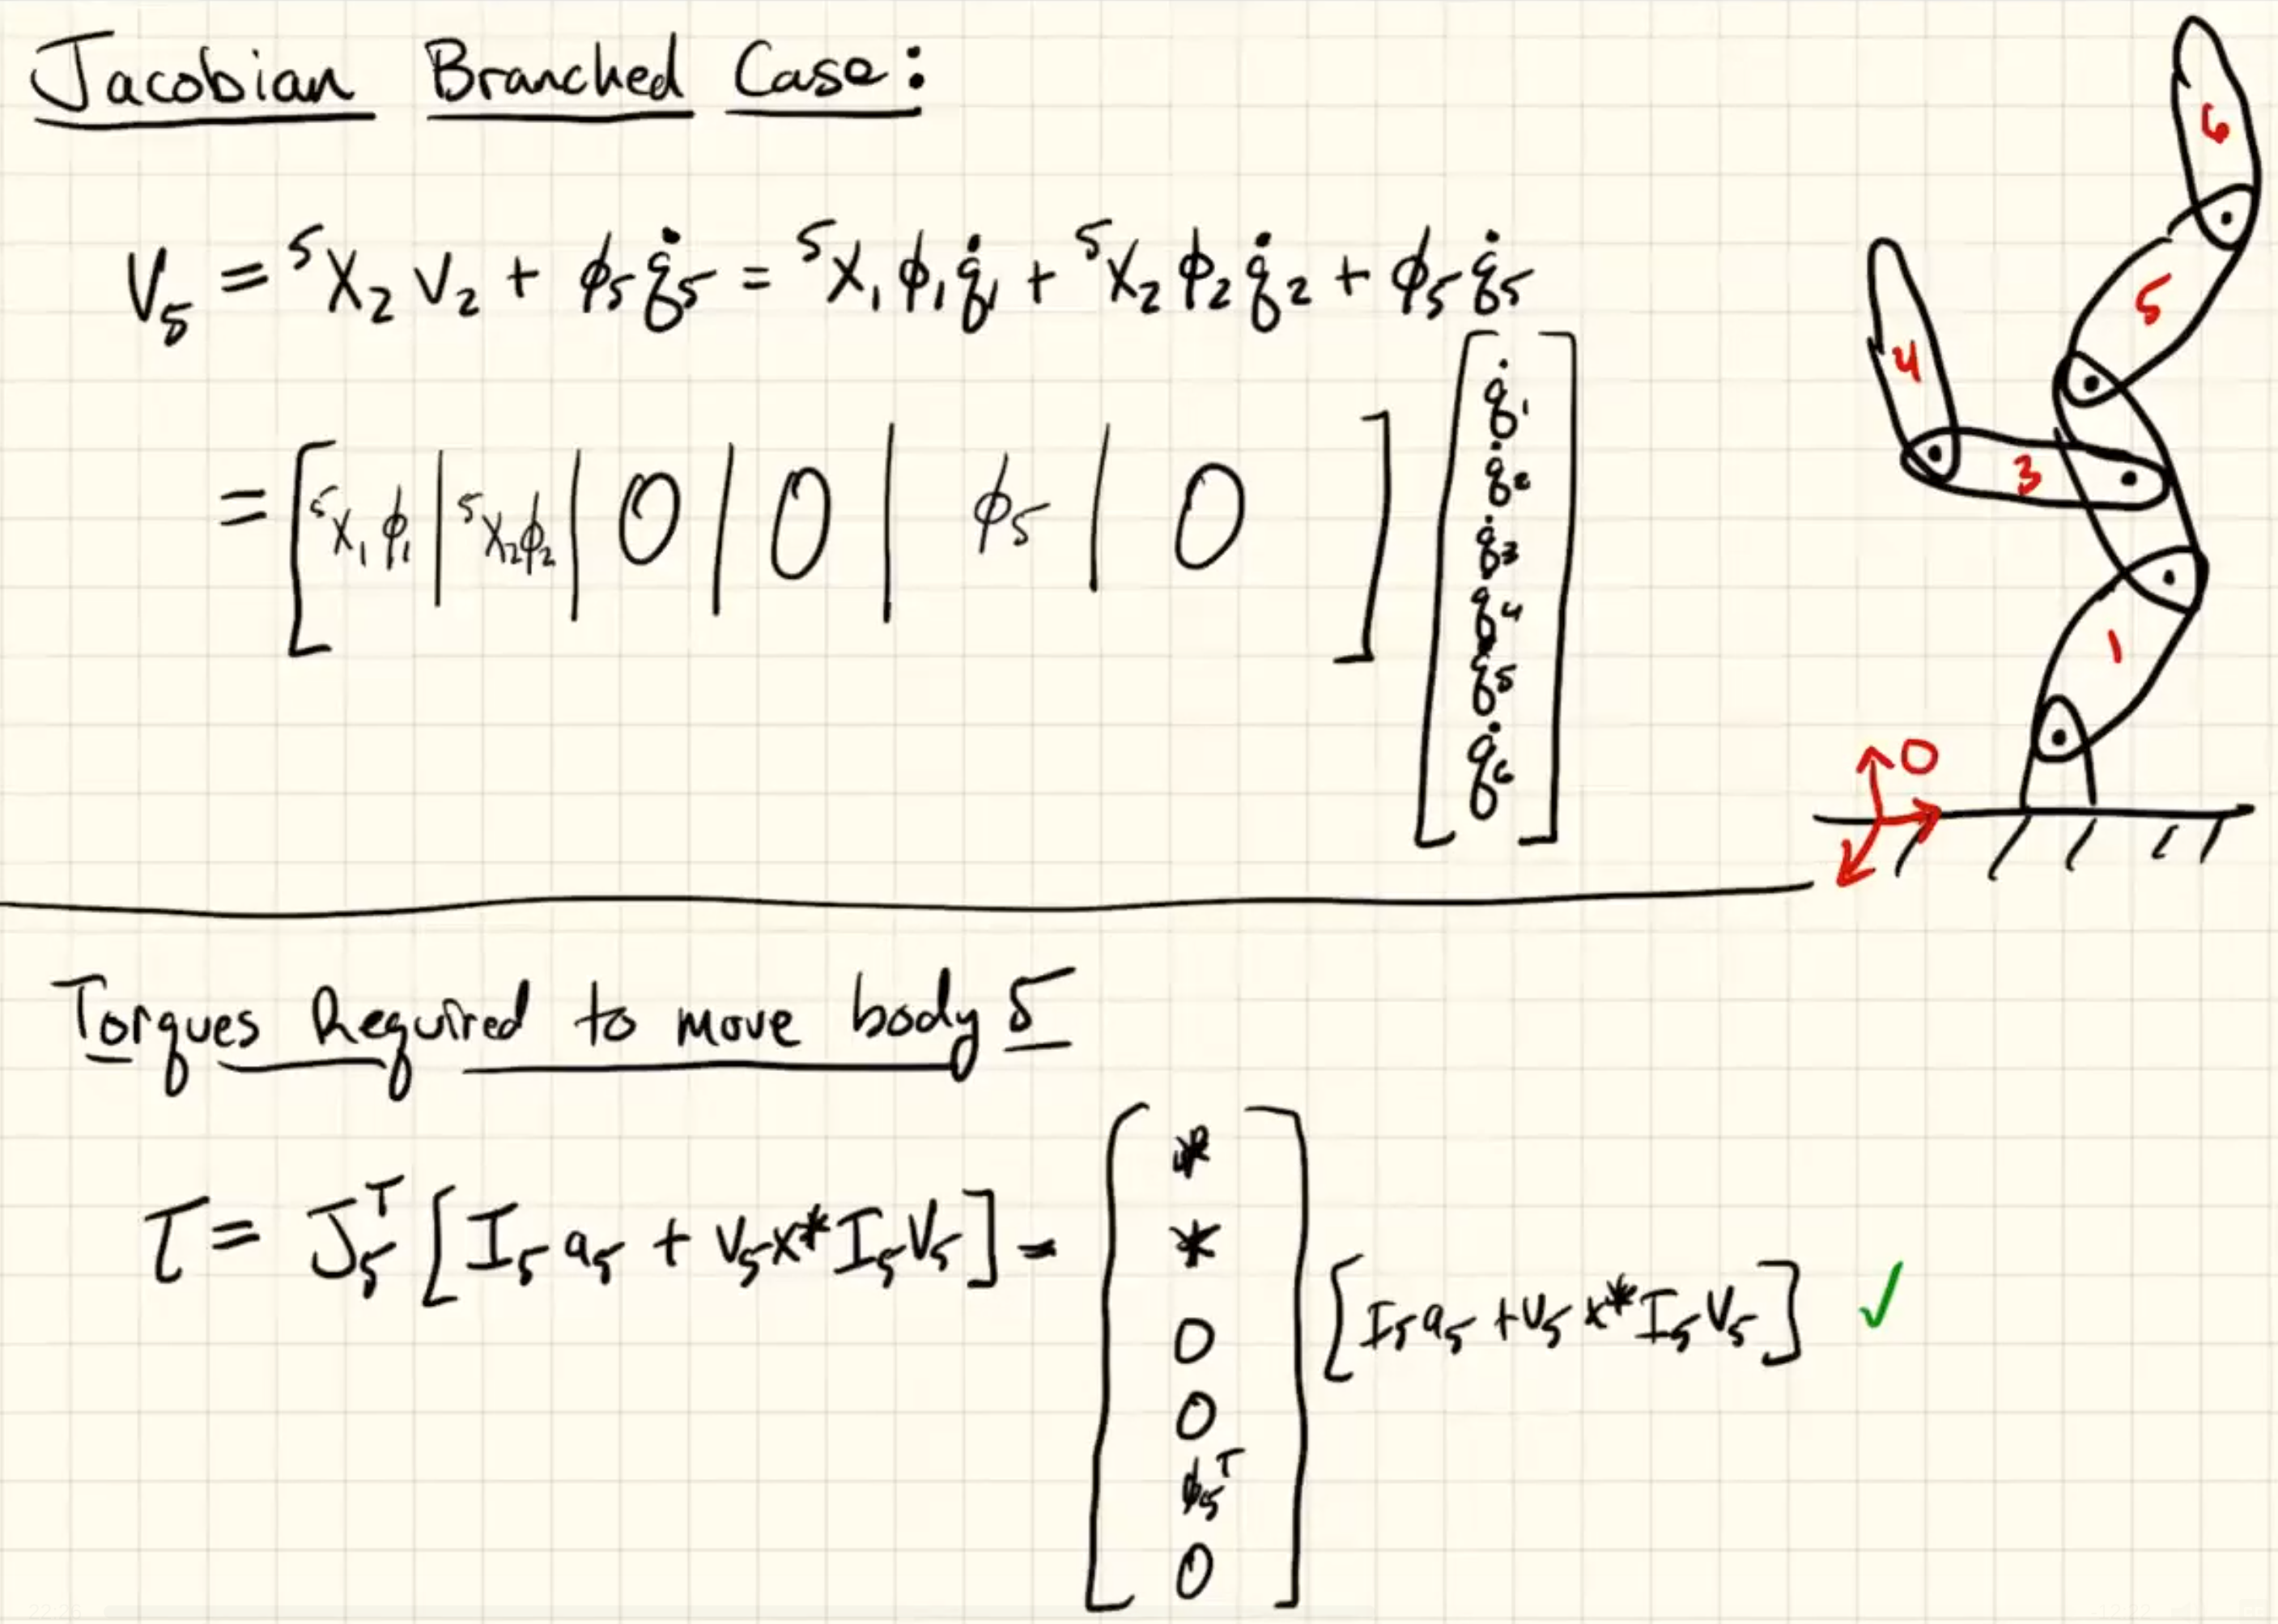 Jacobian Branched Case:
V₅ = ⁵X₂ V₂ + ϕ₅ q̇₅ = ⁵X₁ ϕ₁ q̇₁ + ⁵X₂ ϕ₂ q̇₂ + ϕ₅ q̇₅
= [ ⁵X₁ ϕ₁ | ⁵X₂ ϕ₂ | 0 | 0 | ϕ₅ | 0 ]
q̇₁
q̇₂
q̇₃
q̇₄
q̇₅
q̇₆
6
5
4
3
1
0
Torques Required to move body 5
τ = J₅ᵀ [ I₅ a₅ + V₅ x* I₅ V₅ ] =
*
*
0
0
ϕ₅ᵀ
0
[ I₅ a₅ + V₅ x* I₅ V₅ ] ✓